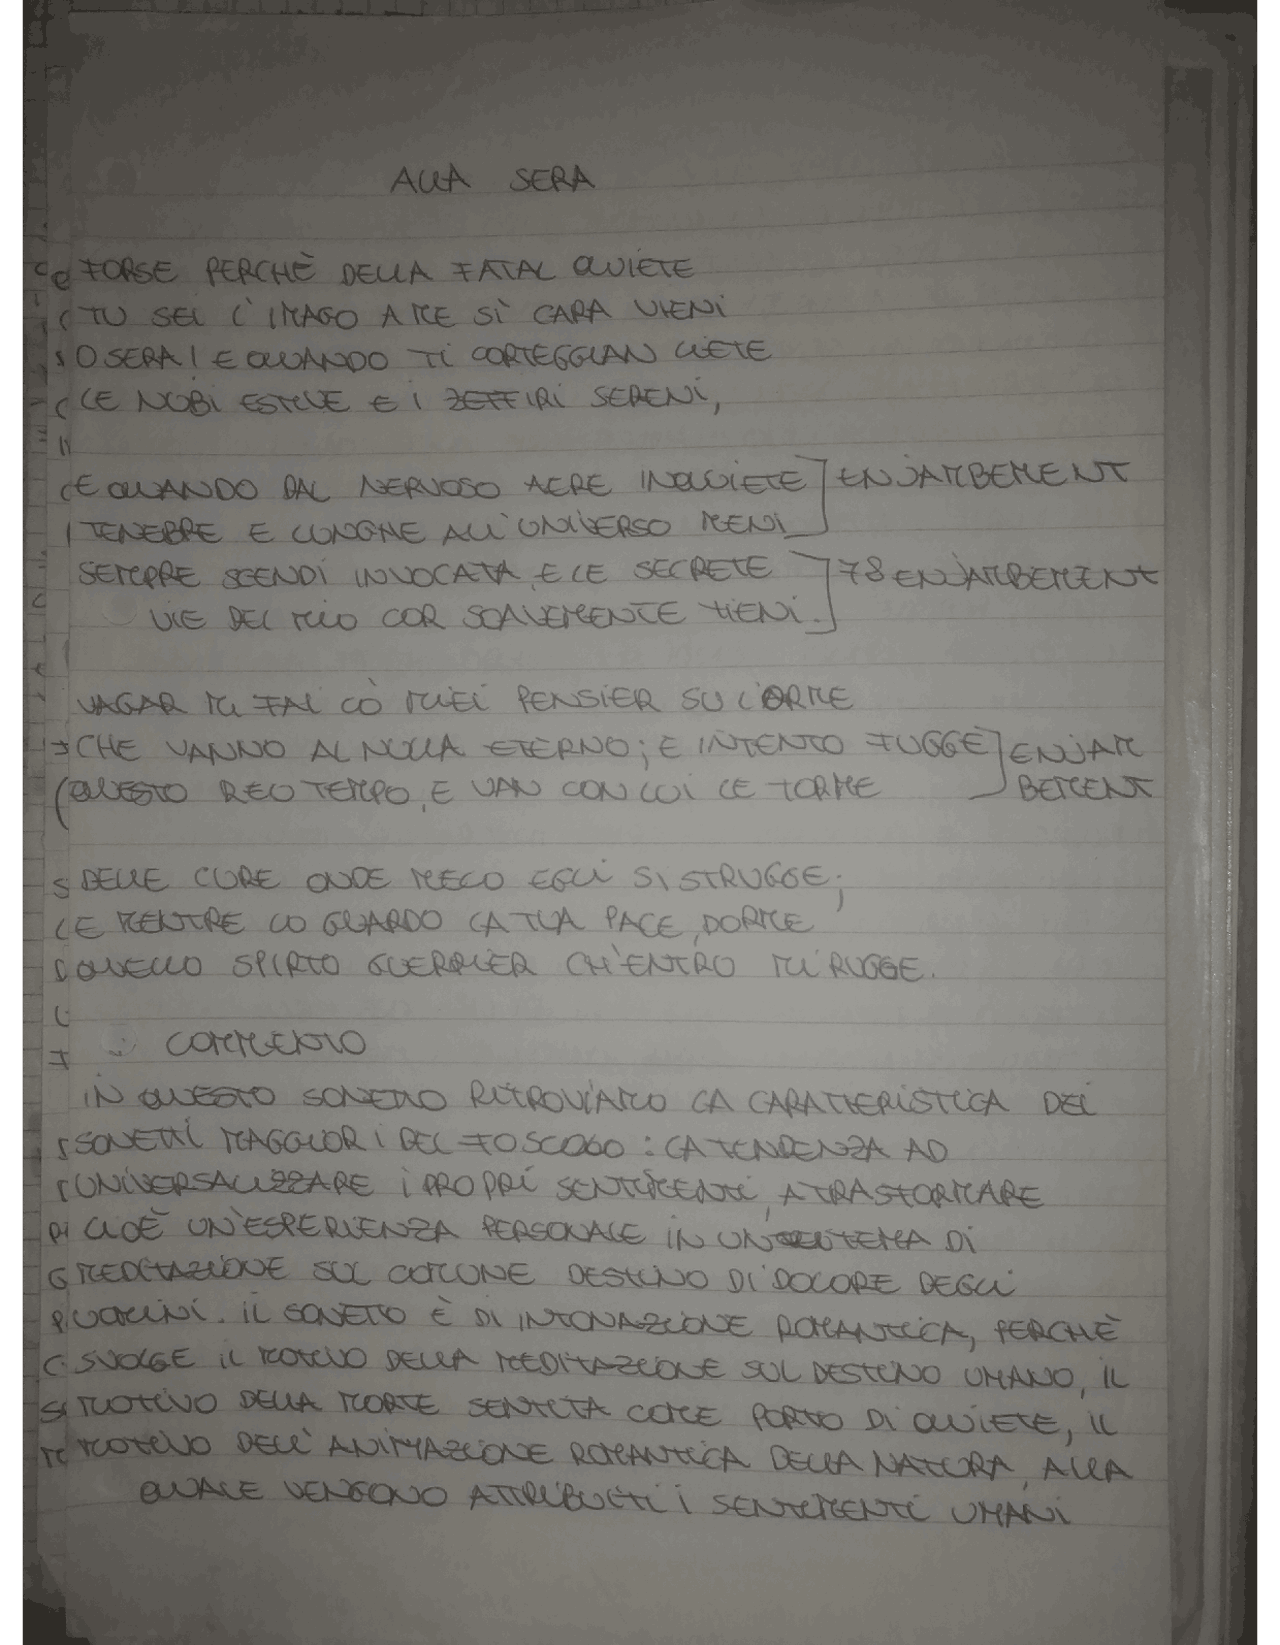 ALLA SERA
FORSE PERCHÈ DELLA FATAL QUIETE
TU SEI L'IMAGO A ME SÌ CARA VIENI
O SERA! E QUANDO TI CORTEGGIAN LIETE
LE NUBI ESTIVE E I ZEFFIRI SERENI,
E QUANDO DAL NERVOSO AERE INQUIETE ENJAMBEMENT
TENEBRE E LUNGHE ALL'UNIVERSO MENI
SEMPRE SCENDI INVOCATA, E LE SECRETE 78 ENJAMBEMENT
VIE DEL MIO COR SOAVEMENTE TIENI.
VAGAR MI FAI CO' MIEI PENSIER SU L'ORME
CHE VANNO AL NULLA ETERNO; E INTENTO FUGGE ENJAM
QUESTO REO TEMPO, E VAN CON LUI LE TORME BEMENT
DELLE CURE ONDE MECO EGLI SI STRUGGE;
E MENTRE LO GUARDO LA TUA PACE, DORME
QUELLO SPIRTO GUERRIER CH'ENTRO MI RUGGE.
COMMENTO
IN QUESTO SONETTO RITROVIAMO LA CARATTERISTICA DEI
SONETTI MAGGIORI DEL FOSCOLO: LA TENDENZA AD
UNIVERSALIZZARE I PROPRI SENTIMENTI, A TRASFORMARE
CIOÈ UN'ESPERIENZA PERSONALE IN UN TEMA DI
MEDITAZIONE SUL COMUNE DESTINO DI DOLORE DEGLI
UOMINI. IL SONETTO È DI INTONAZIONE ROMANTICA, PERCHÈ
SVOLGE IL MOTIVO DELLA MEDITAZIONE SUL DESTINO UMANO, IL
MOTIVO DELLA MORTE SENTITA COME PORTO DI QUIETE, IL
MOTIVO DELL'ANIMAZIONE ROMANTICA DELLA NATURA, ALLA
QUALE VENGONO ATTRIBUITI I SENTIMENTI UMANI